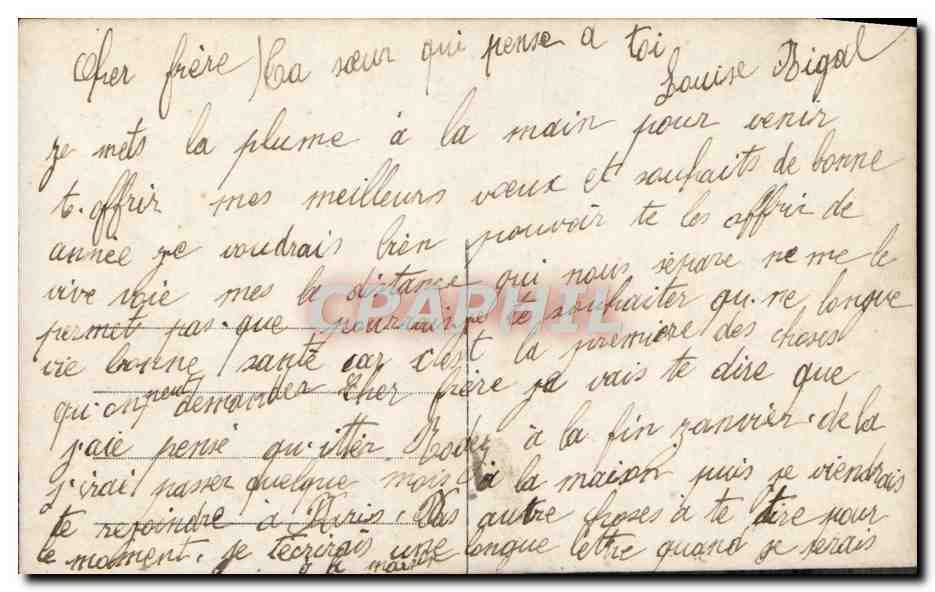 Cher frère) Ta sœur qui pense a toi
Louise Bigal
je mets la plume à la main pour venir
t.offrir mes meilleurs vœux et souhaits de bonne
année je voudrais bien pouvoir te les offrir de
vive voie mes la distance qui nous sépare ne me le
permet pas. que pourrais je te souhaiter qu.ne longue
vie bonne santé car c'est la première des choses
qu'on peut demander Cher frère je vais te dire que
j'aie pensé qu.itter Rodez à la fin janvier. de la
j'irai passer quelque mois à la maison puis je viendrais
te rejoindre à Paris. Pas autre choses a te dire pour
le moment. je t'écrirais une longue lettre quand je serais
a la maison
CPAPHIL